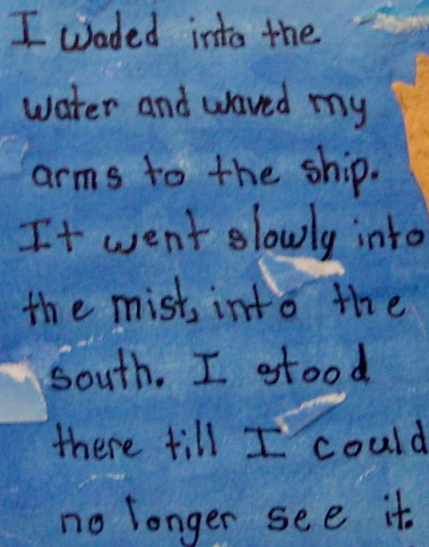 I waded into the
water and waved my
arms to the ship.
It went slowly into
the mist, into the
south. I stood
there till I could
no longer see it.